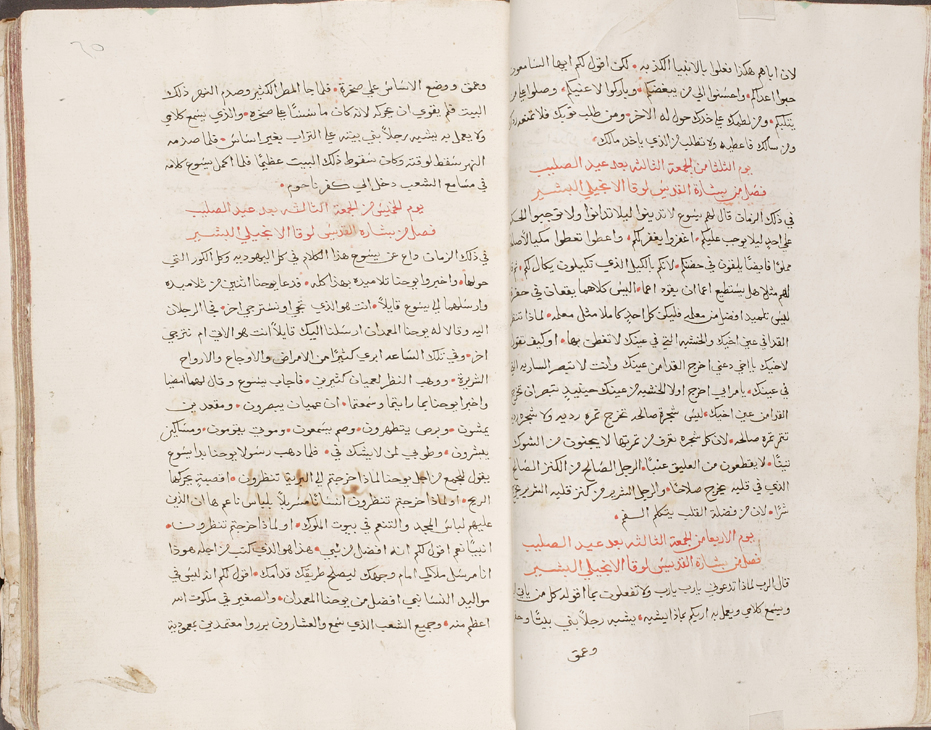 لان اباهم هكذا فعلوا بالانبيا الكذبه • لكن اقول لكم ايها السامعون
حبوا اعداكم • واحسنوا الي من يبغضكم • وباركوا لاعنيكم • وصلوا علي من
يثلبكم • ومن لطمك علي خدك حول له الاخر • ومن طلب ثوبك فلا تمنعه
ومن سالك فاعطيه ولا تطلب من الذي ياخذ مالك •
يوم الثلثا من الجمعة الثالثه بعد عيد الصليب
فصل من بشارة القديس لوقا الانجيلي البشير
في ذلك الزمان قال لهم يسوع لا تدينوا ليلا تدانوا ولا توجبوا الحكم
علي احد ليلا يوجب عليكم • اغفروا يغفر لكم • واعطوا تعطوا مكيالا صالحا
مملوا فايضا يلقون في حضنكم • لانكم بالكيل الذي تكيلون يكال لكم •
لهم مثلا هل يستطيع اعما ان يقود اعما • اليس كلاهما يقعان في حفره
ليس تلميد افضل من معلمه فليكن كل احد كاملا مثل معلمه • لماذا تنظر
القدا في عين اخيك • والخشبه التي في عينك لا تفطن بها • او كيف تقول
لاخيك يا اخي دعني اخرج القدا من عينك وانت لا تبصر الساريه التي
في عينك • يا مراي اخرج اولا الخشبه من عينك حينيد تبصر ان تخرج
القدا من عين اخيك • ليس شجرة صالحه تخرج ثمره رديه ولا شجره رديه
تثمر ثمره صالحه • لان كل شجره تعرف من ثمرتها لا يجنون من الشوك
تينا • لا يقطعون من العليق عنبا • الرجل الصالح من الكنز الصالح
الذي في قلبه يخرج صلاحا • والرجل الشرير من كنز قلبه الشرير يخرج
شرا • لان من فضلة القلب يتكلم الفم •
يوم الاربعا من الجمعة الثالثه بعد عيد الصليب
فصل من بشارة القديس لوقا الانجيلي البشير
قال الرب لماذا تدعوني يا رب يا رب ولا تفعلون بما اقوله كل من ياتي
ويسمع كلامي ويعمل به اريكم بماذا يشبه • يشبه رجلا بني بيتا وحفر
وعمق
وعمق ووضع الاساس علي صخرة • فلما جا المطر الكثير وصدم النهر ذلك
البيت فلم يقوي ان يحركه لانه كان مأسسا علي صخرة • والذي يسمع كلامي
ولا يعمل به يشبه رجلا بني بيته علي التراب بغير اساس • فلما صدمه
النهر سقط لوقته وكان سقوط ذلك البيت عظيما • فلما اكمل يسوع كلامه
في مسامع الشعب دخل الي كفرناحوم •
يوم الخميس من الجمعة الثالثه بعد عيد الصليب
فصل من بشارة القديس لوقا الانجيلي البشير
في ذلك الزمان داع عن يسوع هذا الكلام في كل اليهوديه وكل الكور التي
حولها • واخبروا يوحنا تلاميده بهذا كله • فدعا يوحنا اثنين من تلاميده
وارسلهما الي يسوع قايلا • انت هو الذي تجي او نسترجي اخر • فجا الرجلان
اليه وقالا له يوحنا المعمدان ارسلنا اليك قايلا انت هو الاتي ام نترجي
اخر • وفي تلك الساعه ابري كثيرا من الامراض والاوجاع والارواح
الشريرة • ووهب النظر لعميان كثيرين • فاجاب يسوع وقال لهما امضيا
واخبرا يوحنا بما رايتما وسمعتما • ان عميان يبصرون • ومقعدين
يمشون • وبرص يتطهرون • وصم يسمعون • وموتي يقومون • ومساكين
يبشرون • وطوبي لمن لا يشك في • فلما دهب رسولا يوحنا بدا يسوع
يقول للجمع من اجل يوحنا لماذا خرجتم الي البرية تنظرون • اقصبة يحركها
الريح • او لماذا خرجتم تنظرون انسانا متسربلا بلباس ناعم ها ان الذين
عليهم لباس المجد والتنعم في بيوت الملوك • او لماذا خرجتم تنظرون •
انبيا نعم اقول لكم انه افضل من نبي • هذا هو الذي كتب من اجله هوذا
انا مرسل ملاكي امام وجهك ليصلح طريقك قدامك • اقول لكم انه ليس في
مواليد النسا نبي افضل من يوحنا المعمدان • والصغير في ملكوت الله
اعظم منه • وجميع الشعب الذي سمع والعشارون برروا معتمدين بمعمودية